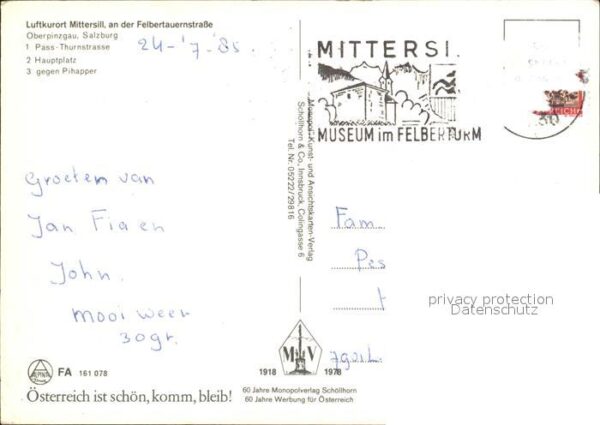 Luftkurort Mittersill, an der Felbertauernstraße
Oberpinzgau, Salzburg
1 Pass-Thurnstrasse
2 Hauptplatz
3 gegen Pihapper
24-7-85
MITTERSI
MUSEUM im FELBERTURM
Monopol-Kunst- und Ansichtskarten-Verlag
Schöllhorn & Co., Innsbruck, Colingasse 6
Tel. Nr. 05222/29816
Groeten van
Jan Fia en
John.
mooi weer
30gr.
Fam
Pes
privacy protection
Datenschutz
1918 M V 1978
FA 161 078
Österreich ist schön, komm, bleib!
60 Jahre Monopolverlag Schöllhorn
60 Jahre Werbung für Österreich